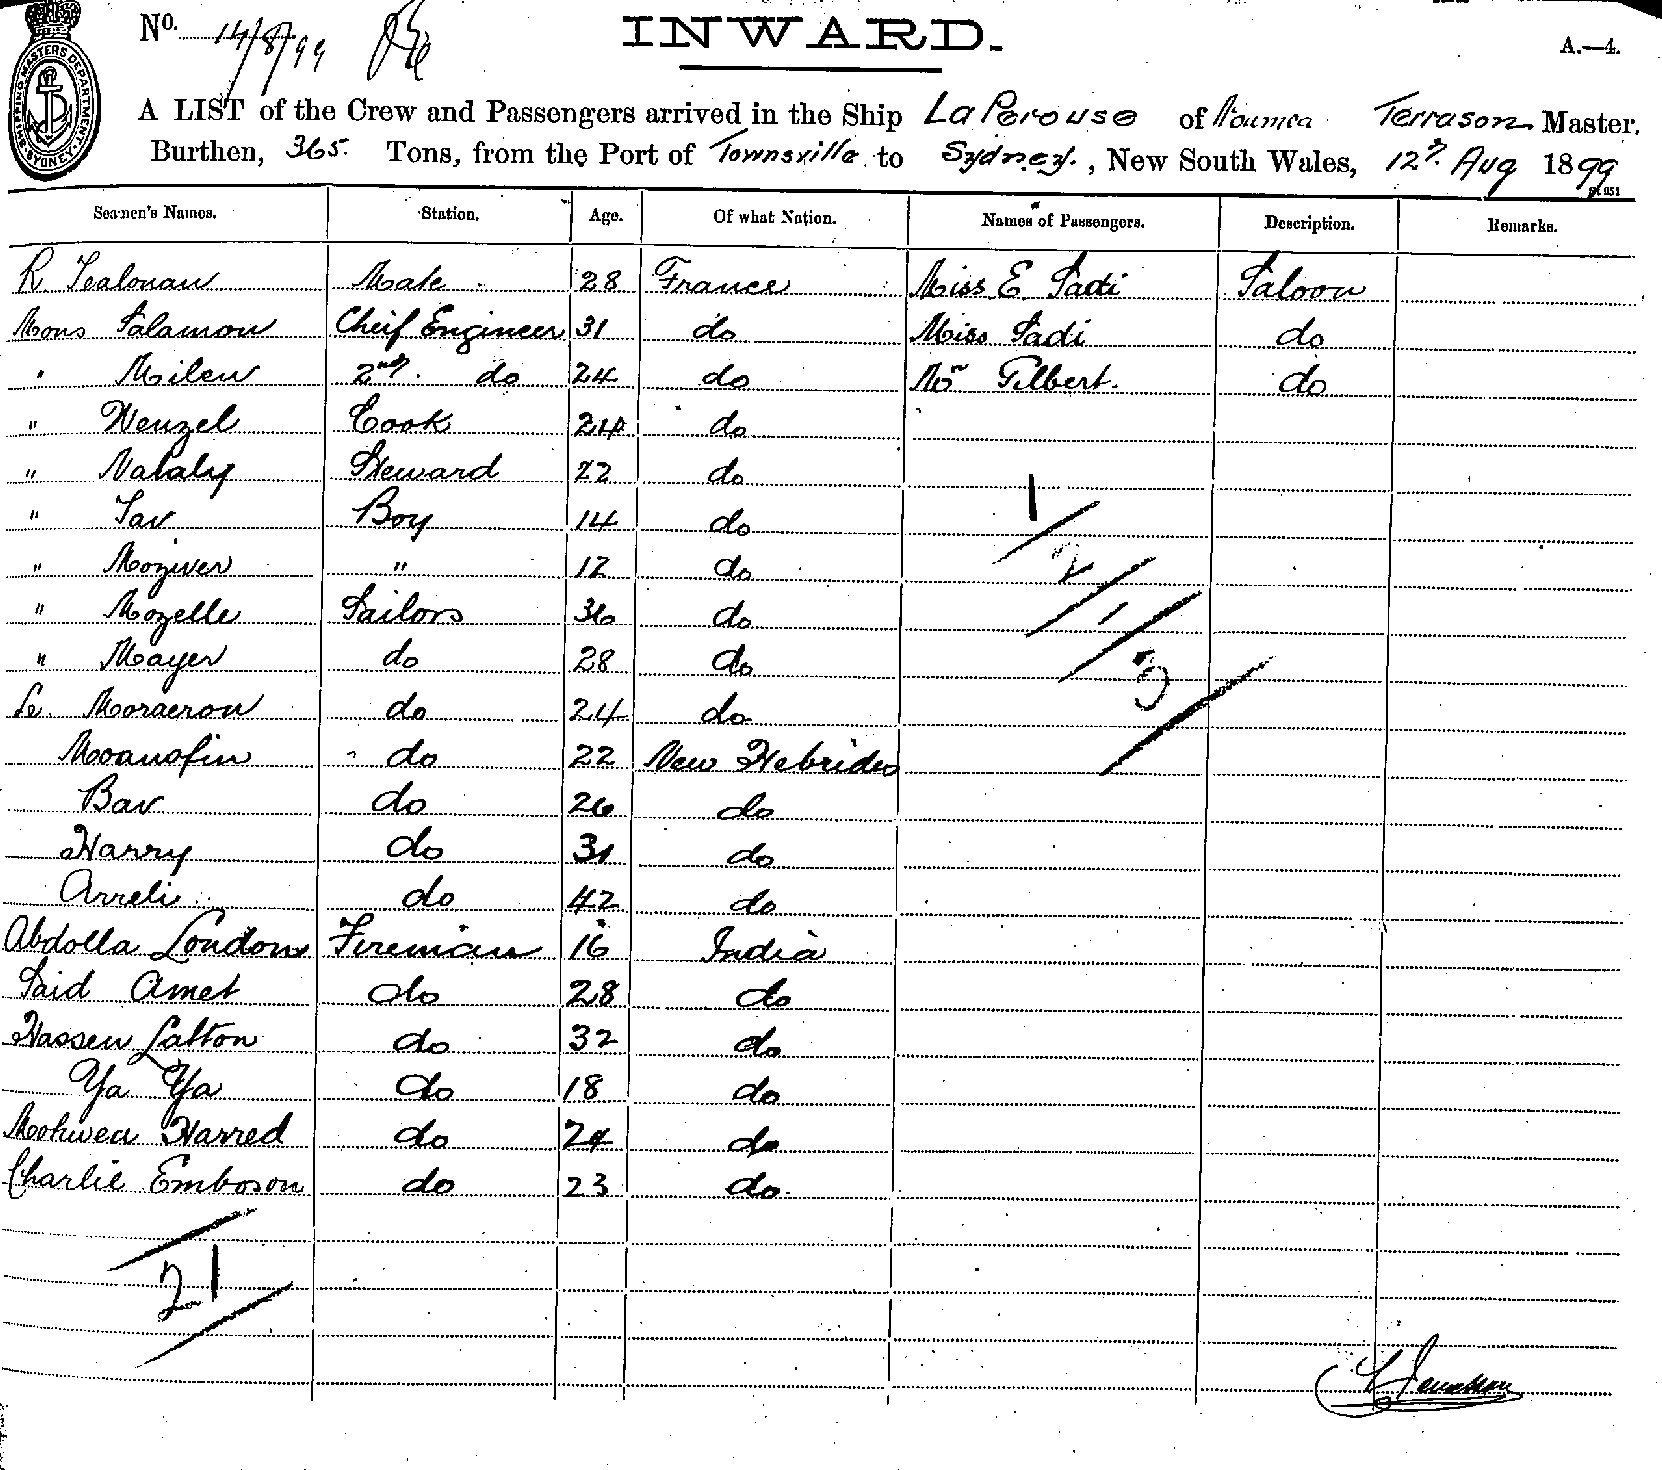 SHIPPING MASTERS DEPARTMENT SYDNEY
No. 14/8/99
INWARD.
A.—4.
A LIST of the Crew and Passengers arrived in the Ship La Perouse of Noumea Terrason Master,
Burthen, 365 Tons, from the Port of Townsville to Sydney, New South Wales, 12th Aug 1899
Seamen's Names. Station. Age. Of what Nation. Names of Passengers. Description. Remarks.
R. Mate 28 France Miss E Sadi Saloon
Mons Salamon Cheif Engineer 31 do Miss Sadi do
" Milen 2nd do 24 do Mr Gilbert. do
" Wenzel Cook 24 do
" Nataly Steward 22 do
" Boy 14 do
" " 12 do
" Mozelle Sailors 36 do
" Mayer do 28 do
Le do 24 do
do 22 New Hebrides
Bav do 26 do
Harry do 31 do
Arreli do 42 do
Abdolla London Fireman 16 India
Said Amet do 28 do
Hassen Latton do 32 do
Ya Ya do 18 do
Harred do 24 do
Charlie Emboson do 23 do
1
2
1
3
21